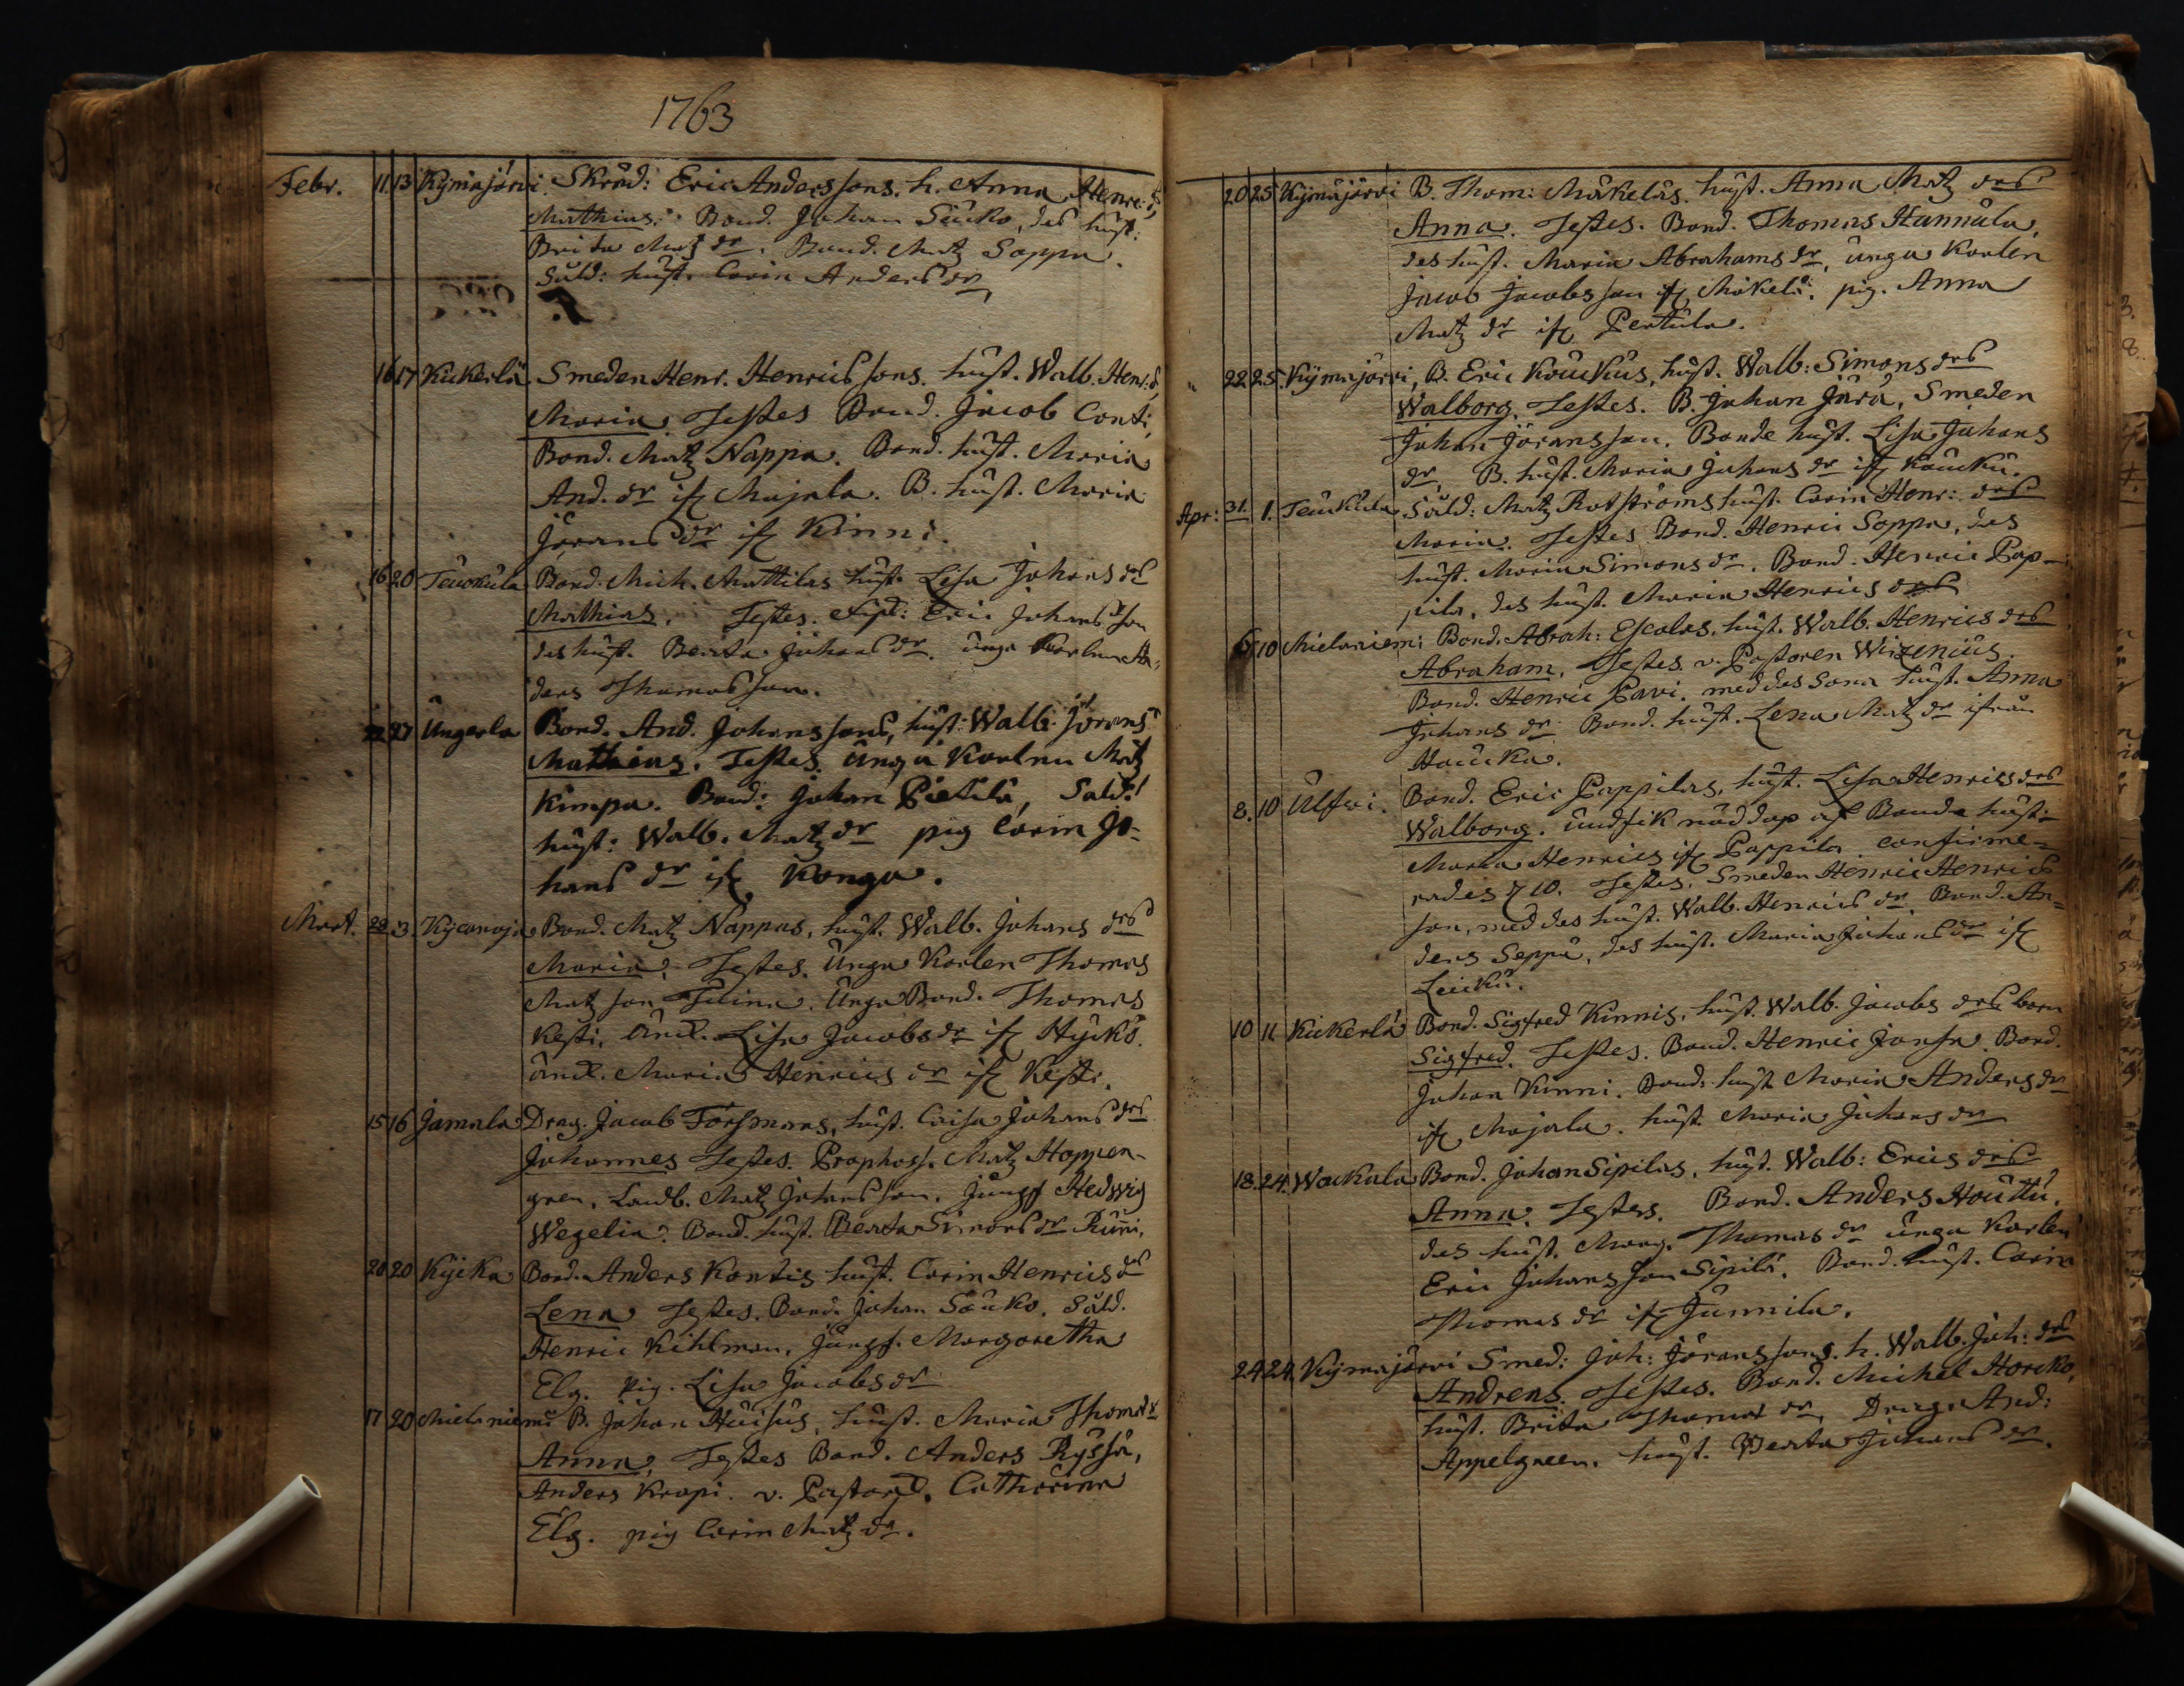 1763
Febr. 11 13 Kymäjärvi. Skräd: Eric Anderssons. h. Anna Henr: d.
Mathias. Bond. Johan Säuko, des hust:
Brita Matz dr. Bond. Matz Soppa.
Sold: hust. Carin Anders dr
16 17 Kukerla. Smeden Henr. Henricssons. hust. Walb. Henr: d.
Maria. Testes Bond. Jacob Conti,
Bond. Matz Nappa. Bond. hust. Maria
And. dr if Majala. B. hust. Maria
Jörans dr if Kinni.
16 20 Teuckula Bond. Mich. Mattilas hust. Lisa Johans drs
Mathias. Testes. Eric Johansson
des hust. Beata Johans dr. unga Karlen An-
ders Thomasson.
22 27 Ungerla Bond. And. Johanssons, hust: Walb. Jörans
Mathias. Testes. unga Karlen Matz
Kimpa. Bond: Johan Pietilä, Sold:
hust: Walb. Matz dr pig Carin Jo-
hans dr if Konga.
Mart. 28 3. Kycaroja Bond. Matz Nappas, hust. Walb. Johans drs
Maria. Testes. Unga Karlen Thomas
Matzson Unga Bond. Thomas
Kesti. Lisa Jacobs dr if Hyckö.
Maria Henrics dr if Kesti.
15 16 Jamala Drag. Jacob Forsmans, hust. Caisa Johans drs
Johannes Testes. Prophoss. Matz Hoppen-
gren. Landb. Matz Johansson. Jungf Hedwig
Wegelia. Bond. hust. Beata Simons dr Runi.
20 20 Kycka Bond. Anders Kontis hust. Carin Henrics drs
Lena Testes. Bond. Johan Säuko. Sold.
Henric Kihlman, Jungf. Margaretha
Elg. pig. Lisa Jacobs dr
17 20 Mielaniemi B. Johan Huisus, hust. Maria Thomas dr
Anna. Testes Bond. Anders Ryssä,
Anders Krapi. v. Pastor. Catharina
Elg. pig Carin Matz dr.
20 25 Kymäjärvi B. Thom: Mäkeläs. hust. Anna Matz drs
Anna. Testes. Bond. Thomas Hannula,
des hust. Maria Abrahams dr, unga Karlen
Jacob Jacobsson if Mäkelä. pig. Anna
Matz dr if Perttula.
22 25 Kymäjärvi, B. Eric Kouckus, hust. Walb: Simons drs
Walborg. Testes. B. Johan Järä, Smeden
Johan Jöransson. Bonde hust. Lisa Johans
dr, B. hust. Maria Johans dr if Kaucku.
Apr: 31. 1. Teuckula Sold: Matz Rotströms hust. Carin Henr: drs
Maria. Testes Bond. Henric Soppa, des
hust. Maria Simons dr. Bond. Henric Pap-
pila, des hust. Maria Henrics drs
6 10 Mielaniemi Bond. Abrah: Escolas, hust. Walb. Henrics drs
Abraham. Testes v. Pastoren Wirzenius.
Bond. Henric Pavi. med des Sona hust. Anna
Johans dr Bond. hust. Lena Matz dr ifrån
Haucka.
8. 10 Ulfwi. Bond. Eric Pappilas, hust. Lisa Henrics drs
Walborg. undfik nöddop af Bonda hust:
Maria Henrics if Pappila confirme-
rades 10. Testes. Smeden Henric Henrics
son, med des hust. Walb. Henrics dr, Bond. An-
ders Seppä, des hust. Maria Johans dr if
Leicku.
10 11 Kickerlä Bond. Sigfred Kinnis, hust. Walb. Jacobs drs barn
Sigfred. Testes. Bond. Henric Jansa. Bond.
Johan Kinni. Bond. hust Maria Anders dr
if Majala. hust. Maria Johans dr
18. 24. Wackala Bond. Johan Sipilas, hust. Walb: Erics drs
Anna. Testes. Bond. Anders Houttu,
des hust. Marg. Thomas dr unga Karlen
Eric Johansson Sipilä. Bond. hust. Carin
Thomas dr if Junnila.
24 24. Kymäjärvi Smed: Joh: Jöranssons. h. Walb. Joh: drs
Andreas. Testes. Bond. Michel Harcko,
hust. Brita Thomas dr, Drag. And:
Appelgreen. hust. Beata Johans dr.